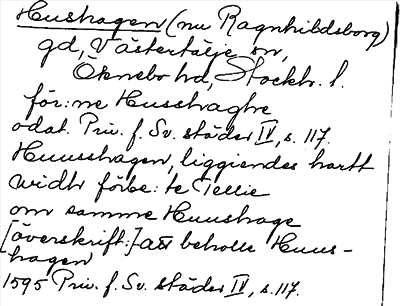 Hushagen (nu Ragnhildsborg)
gd, Västertälje sn,
Öknebo hd, Stockh. l.
för:ne Husshaghe
odat. Priv. f. Sv. städer IV, s. 117.
Huusshagen, liggiendes hartt
widh förbe:te Tellie
om samme Huushage
[överskrift:] att beholle Huus-
hagen
1595 Priv. f. Sv. städer IV, s. 117.